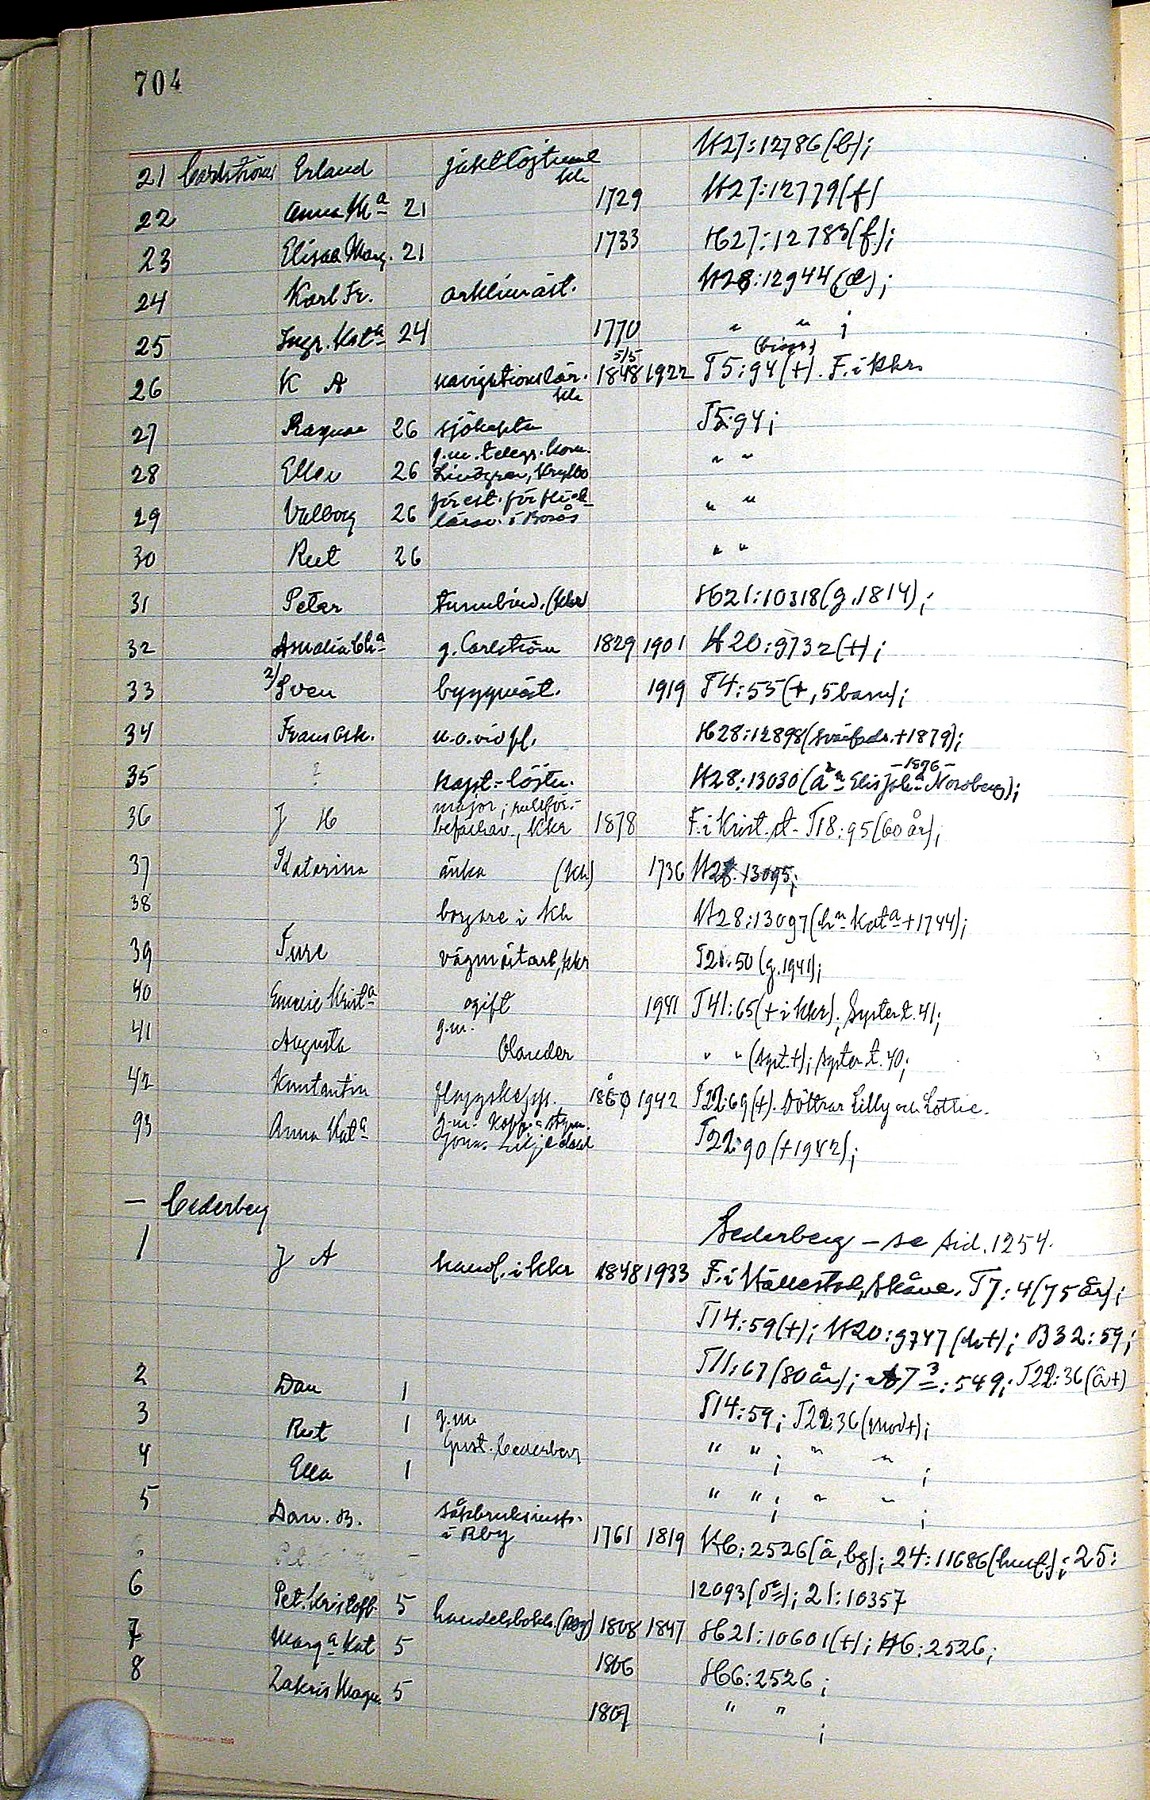 704
21 Carlström Erland jaktlöjtnant kh H27:12786(b);
22 Anna Ma 21 1729 H27:12779(f)
23 Elisa Marg. 21 1733 H27:12783(f);
24 Karl Fr. arklimäst. H28:12944(d);
25 Ingr. Kata 24 1770 " " ;
26 K A navigationslär. kkr 5/5 1848 1922 T5:94(+). F. i kkr (biogr.)
27 Ragnar 26 sjökapten T5:94;
28 Ellen 26 g.m. telegr. kom. Lindgren, Krylbo " "
29 Valborg 26 förest. för
lärov. i Borås " "
30 Rut 26 " "
31 Petar (kkr) H21:10318(g.1814);
32 Amalia Cha g. Carlström 1829 1901 H20:9732(+);
33 2/ Sven byggmäst. 1919 T4:55(+, 5 barn);
34 Frans Osk. u.o.vid fl. H28:12898(svärfadr. +1879);
35 ? kapt.-löjtn. H28:13030(än Elis Joha Nordberg -1896-);
36 J H major; rullför.-
befälhav., kkr 1878 F. i Krist.st. T18:95(60 år);
37 Katarina änka (kh) 1736 H28:13095;
38 borgare i kh H28:13097(hn Kata +1744);
39 Ture vägmästare, kkr T21:50(g.1941);
40 Emelie Krista ogift 1941 T41:65(+ i kkr); Syster t. 41;
41 Augusta g.m. Olander " " (syst. +); syster t. 40;
42 Konstantin flaggskepp. 1860 1942 T22:69(+). Döttrar Lilly och Lottie.
43 Anna Kata g.m.
Jonas Liljedahl T22:90(+1942);
— Cederberg Sederberg – se sid. 1254.
1 J A handl. i kkr 1848 1933 F. i Skåne. T7:4(75 år);
T14:59(+); H20:9747(d+); B32:59;
T11:67(80 år); A7 3:549; T22:36(ä+)
2 Dan 1 T14:59; T22:36(mod+);
3 Rut 1 g.m.
Gust. Cederberg " " ; " " ;
4 Ella 1 " " ; " " ;
5 Dan. B.
i Rby 1761 1819 H6:2526(å, bg); 24:11686(hust); 25:
12093(de); 21:10357
6 Pet. Kristoff. 5 handelsbokh. (Rby) 1808 1847 H21:10601(+); H6:2526;
7 Marga Kat 5 1806 H6:2526;
8 Zakris Magn. 5 1807 " " ;